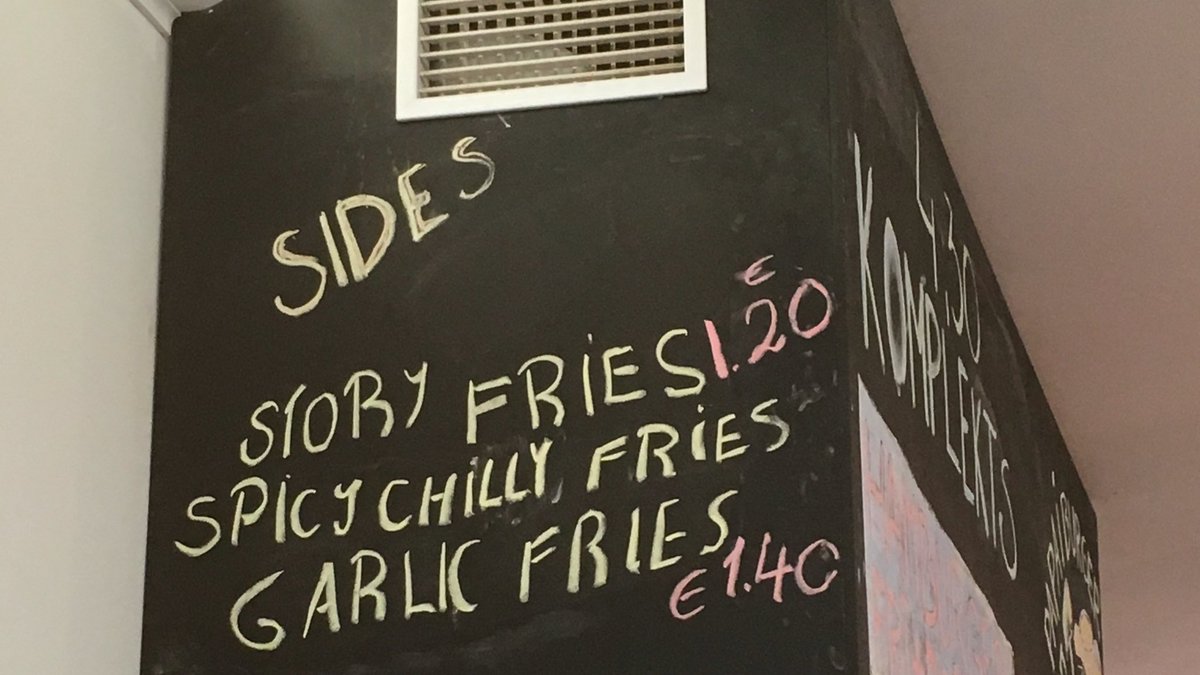 SIDES
STORY FRIES € 1.20
SPICY CHILLY FRIES
GARLIC FRIES € 1.40
4.30
KOMPLEKTS